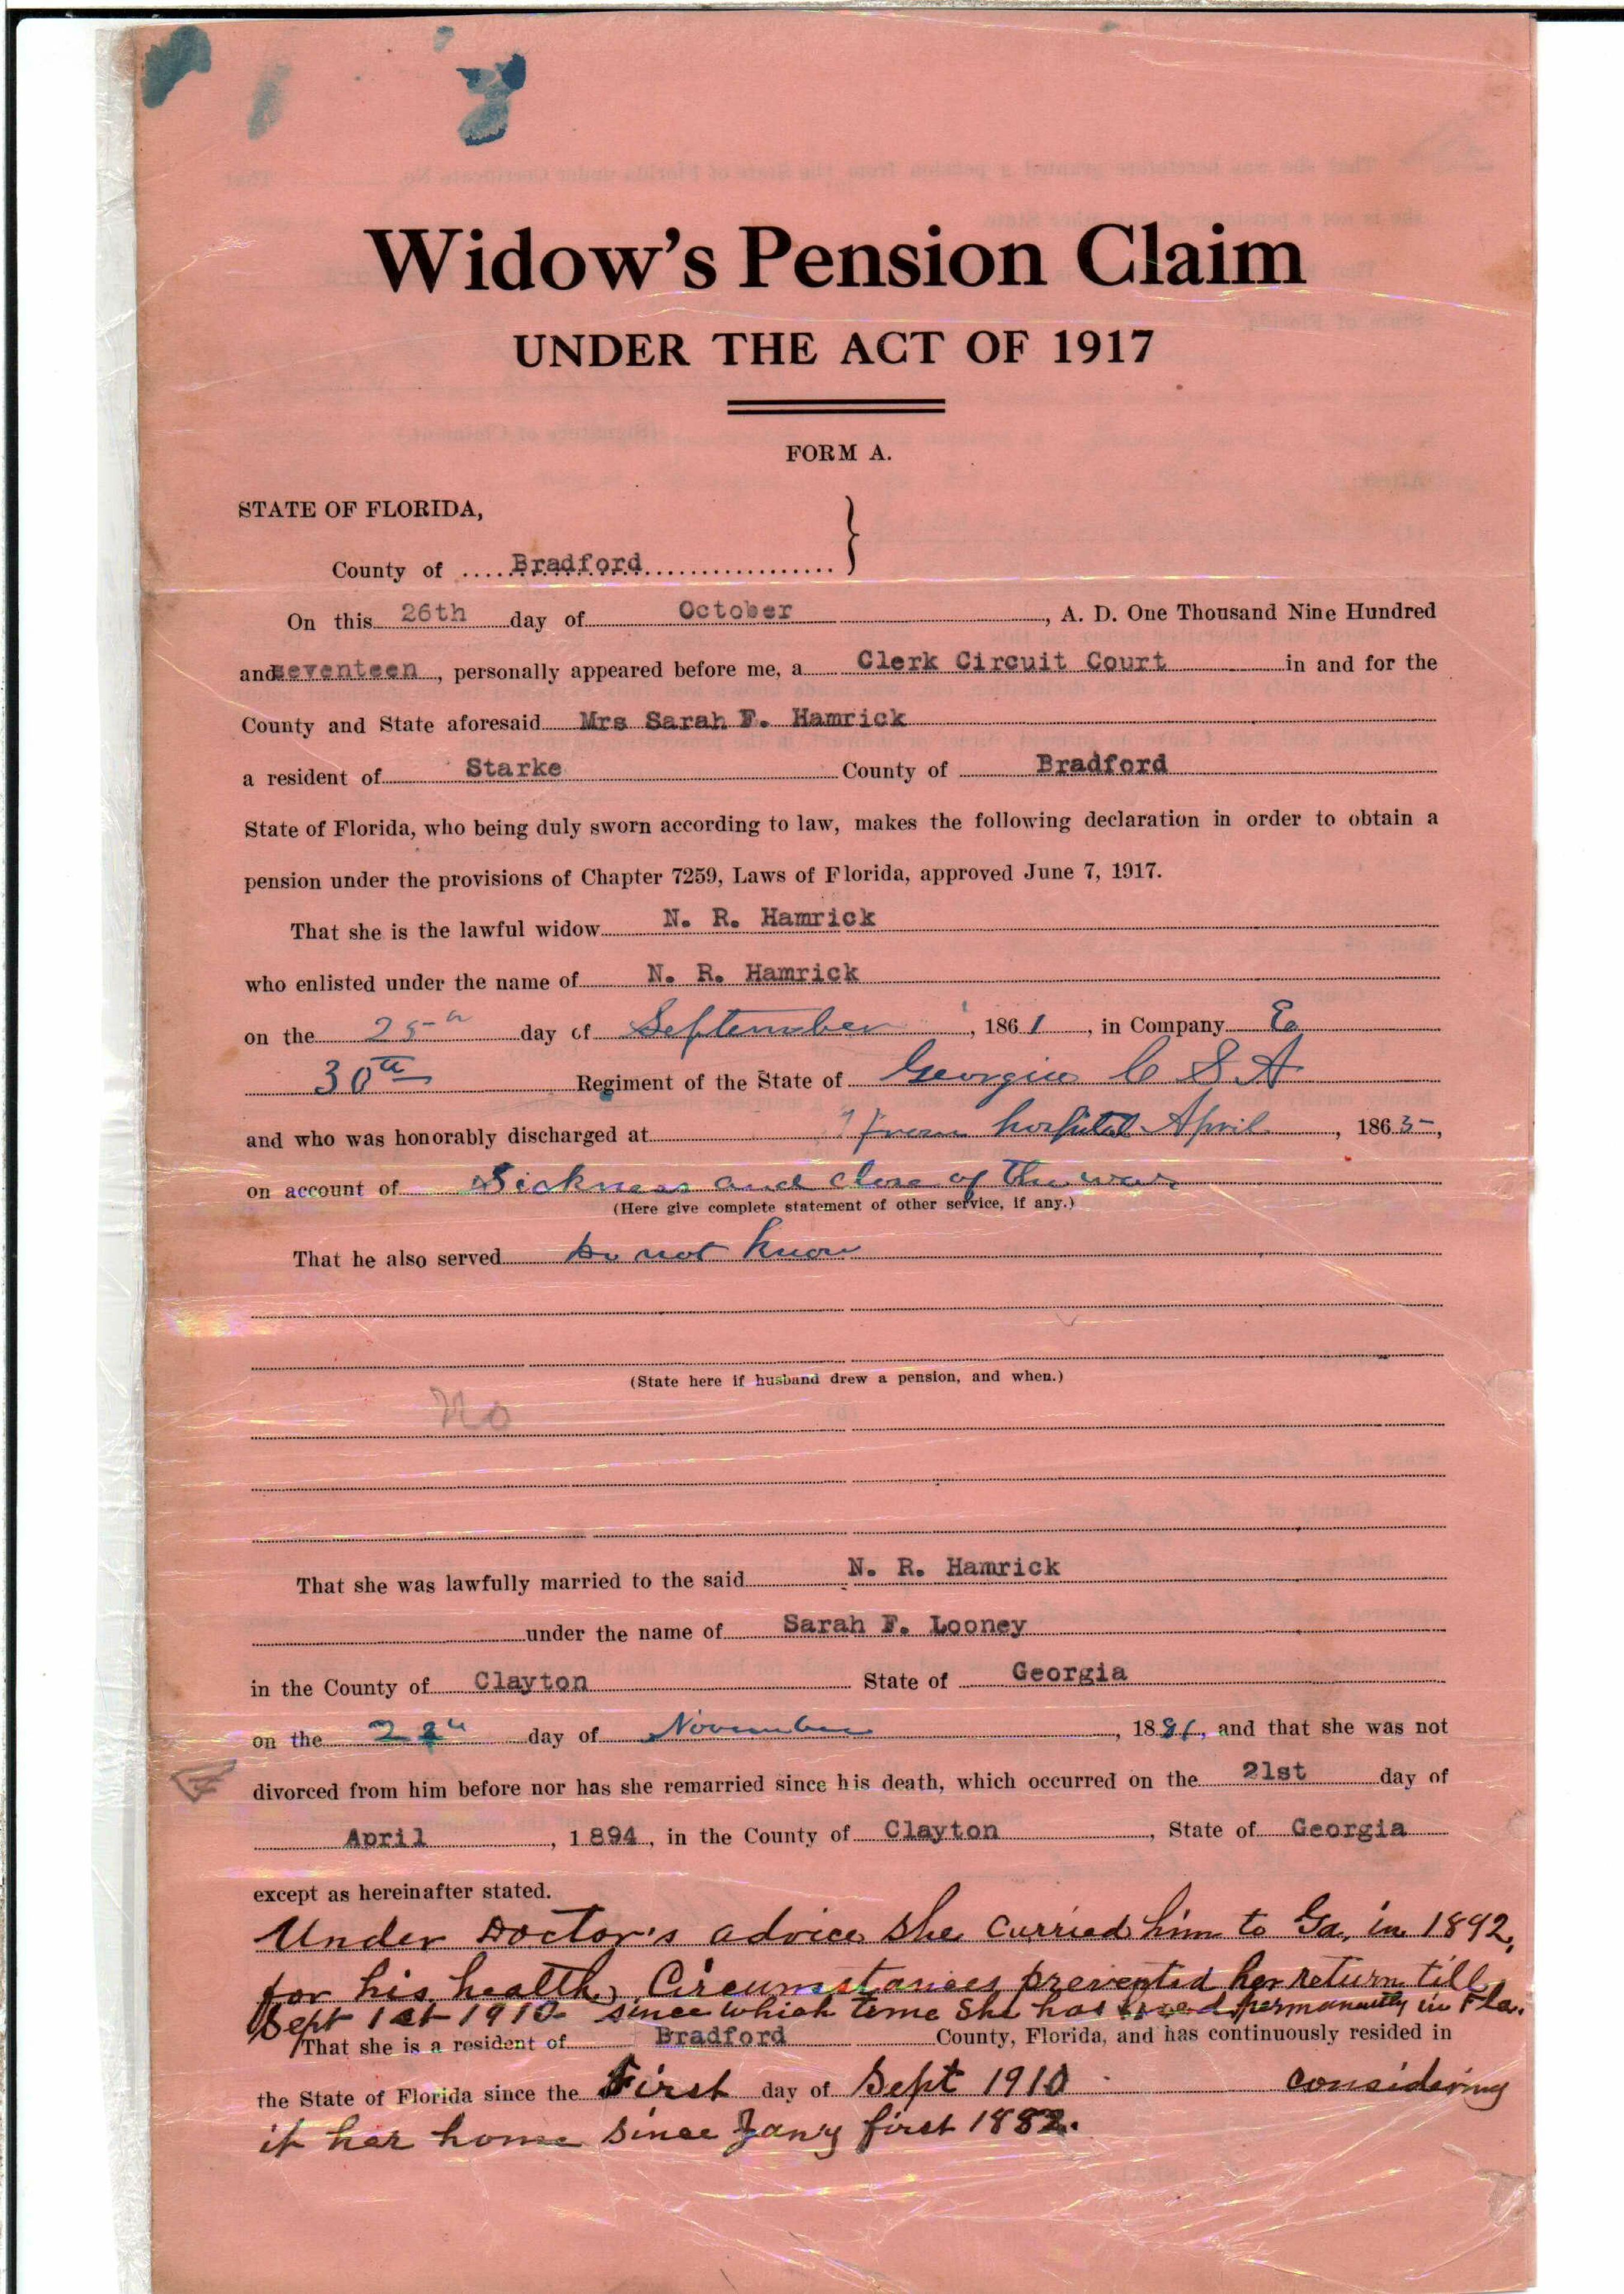 Widow's Pension Claim
UNDER THE ACT OF 1917
FORM A.
STATE OF FLORIDA,
County of Bradford
On this 26th day of October, A. D. One Thousand Nine Hundred
and seventeen, personally appeared before me, a Clerk Circuit Court in and for the
County and State aforesaid Mrs Sarah F. Hamrick
a resident of Starke County of Bradford
State of Florida, who being duly sworn according to law, makes the following declaration in order to obtain a
pension under the provisions of Chapter 7259, Laws of Florida, approved June 7, 1917.
That she is the lawful widow N. R. Hamrick
who enlisted under the name of N. R. Hamrick
on the 25th day of September, 1861, in Company E
30th Regiment of the State of Georgia C S A
and who was honorably discharged at from hospital April, 1865,
on account of Sickness and close of the war
(Here give complete statement of other service, if any.)
That he also served Do not know
(State here if husband drew a pension, and when.)
No
That she was lawfully married to the said N. R. Hamrick
under the name of Sarah F. Looney
in the County of Clayton State of Georgia
on the day of November, 1881, and that she was not
divorced from him before nor has she remarried since his death, which occurred on the 21st day of
April, 1894, in the County of Clayton, State of Georgia
except as hereinafter stated.
Under Doctor's advice she carried him to Ga, in 1892,
for his health, Circumstances prevented her return till
Sept 1st 1910 - since which time she has lived permanently in Fla.
That she is a resident of Bradford County, Florida, and has continuously resided in
the State of Florida since the First day of Sept 1910 considering
it her home since Jany first 1882.